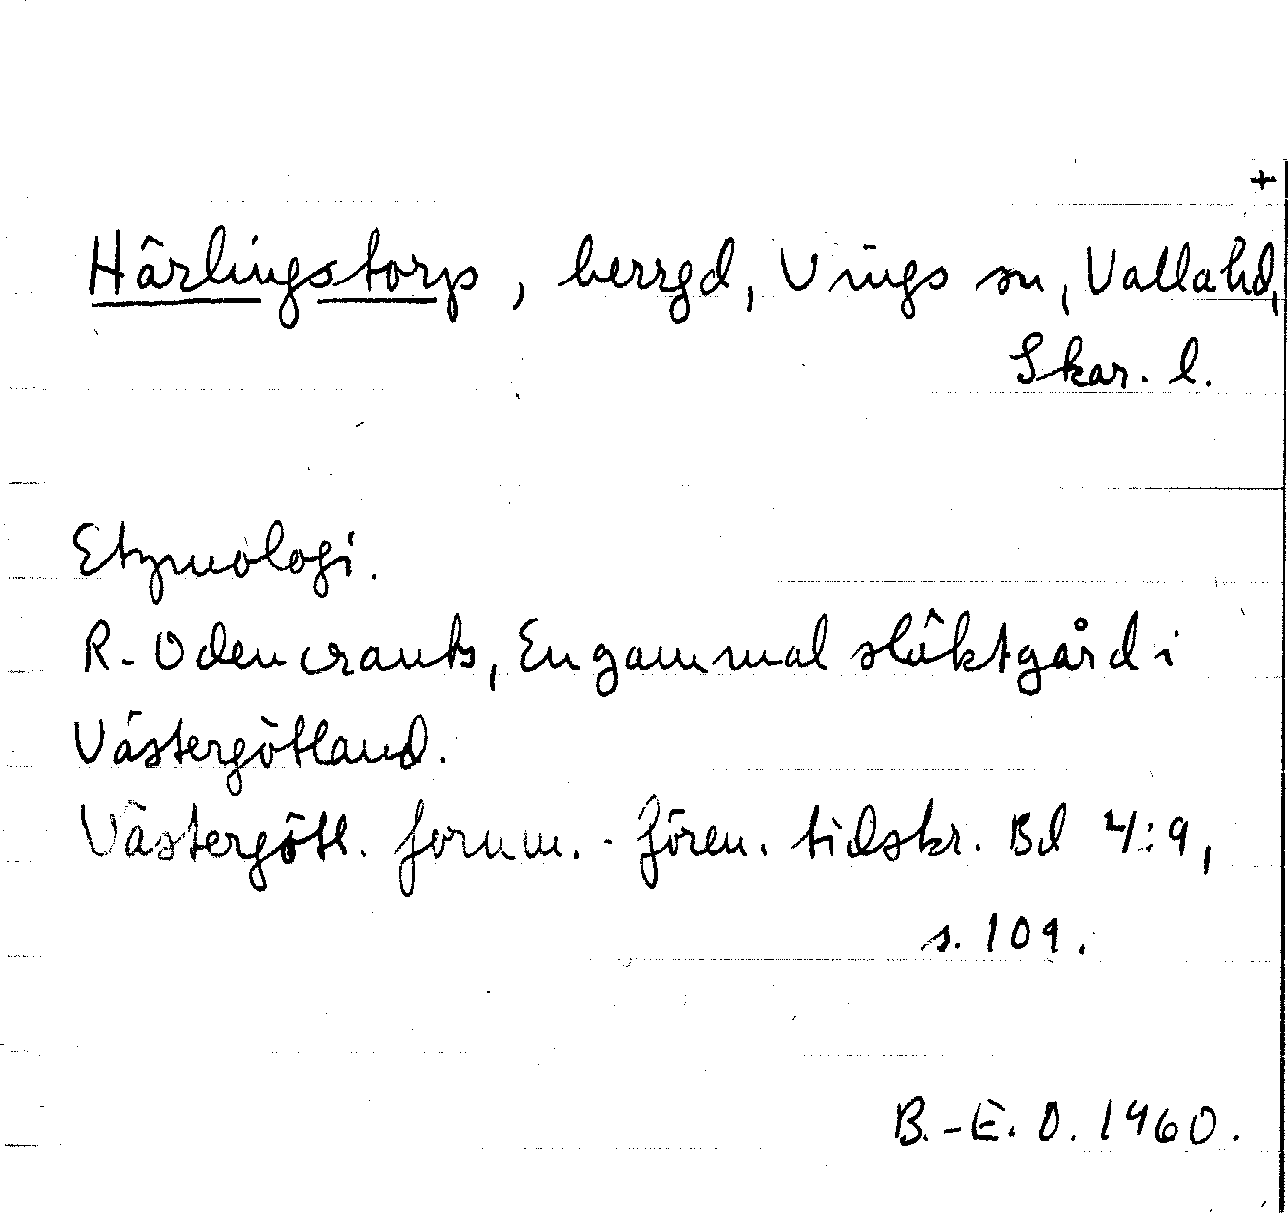 +
Härlingstorp, herrgd, Vings sn, Vallahd,
Skar. l.
Etymologi.
R. Odencrants, En gammal släktgård i
Västergötland.
Västergötl. fornm.-fören. tidskr. Bd 4:9,
s. 109.
B.-E. O. 1960.